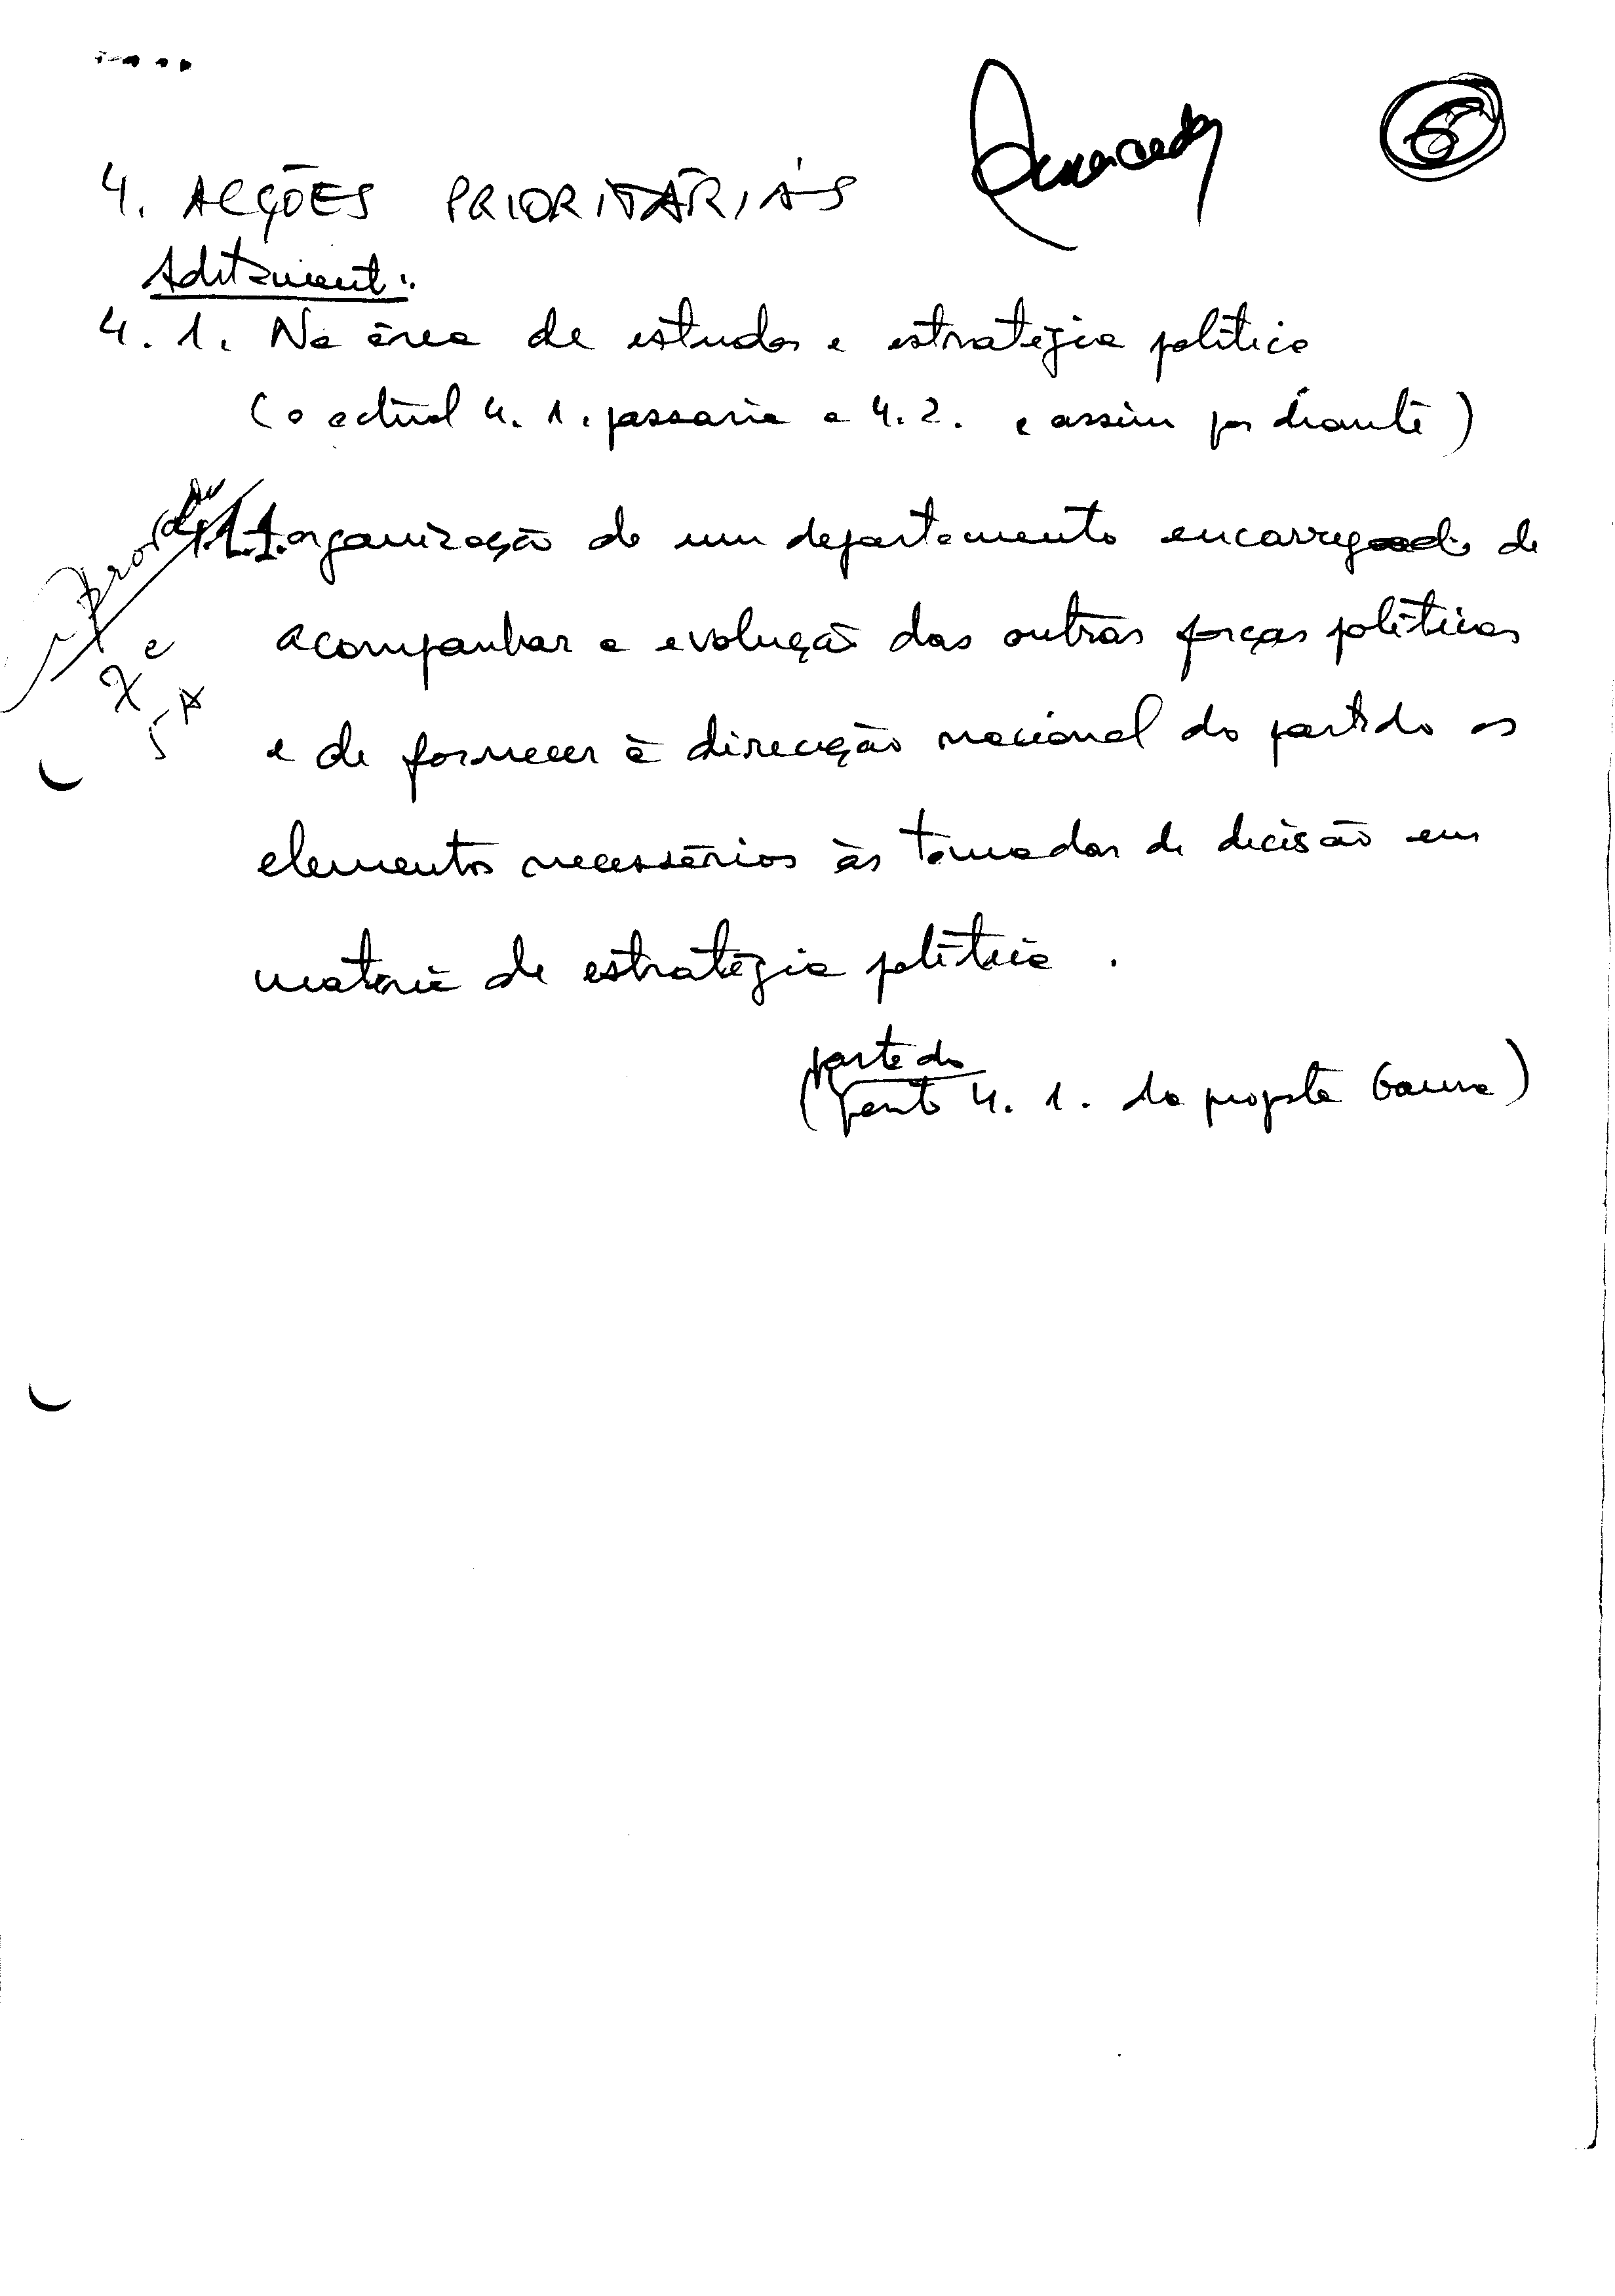 6
4. ACÇÕES PRIORITÁRIAS
Aditamento:
4. 1. Na área de estudos e estratégia política
(o actual 4. 1. passaria a 4. 2. e assim por diante)
4.1.1. organização de um departamento encarregado de
acompanhar a evolução das outras forças políticas
e de fornecer à direcção nacional do partido os
elementos necessários às tomadas de decisão em
matéria de estratégia política.
parte do
(ponto 4. 1. da proposta Gama)